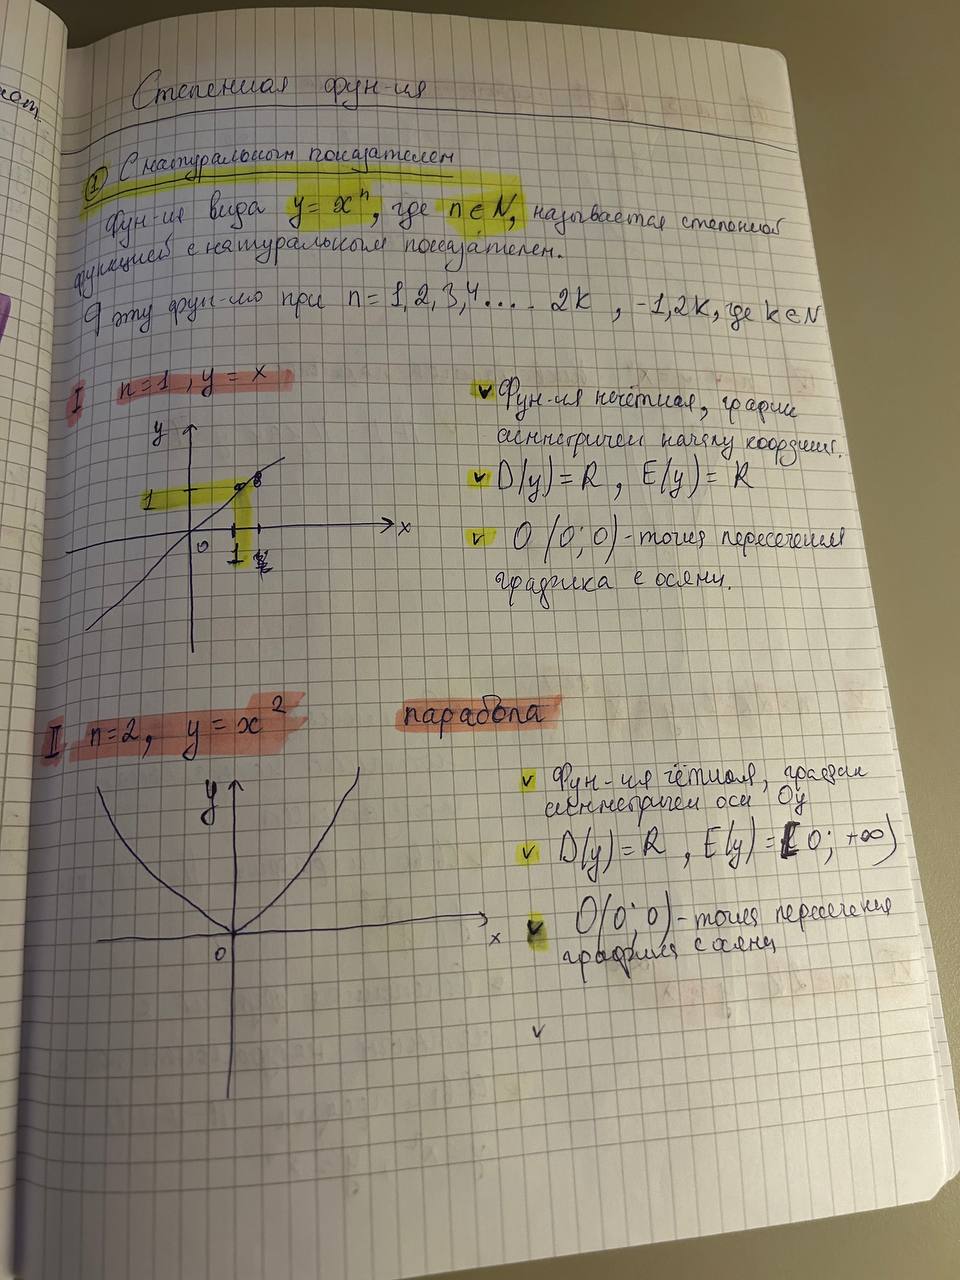 Степенная фун-ия
① С натуральным показателем
Фун-ия вида y = xⁿ, где n ∈ N, называется степенной
функцией с натуральным показателем.
эту фун-ию при n = 1, 2, 3, 4 .... 2k, -1, 2k, где k ∈ N
I n=1, y = x
v Фун-ия нечётная, график
симметричен началу координат.
v D(y) = R, E(y) = R
v O (0; 0) - точка пересечения
графика с осями.
y
1
0
1
x
II n=2, y = x² парабола
v Фун-ия чётная, график
симметричен оси Oy
v D(y) = R, E(y) = [0; +∞)
v O(0; 0) - точка пересечения
графика с осями
v
y
x
0